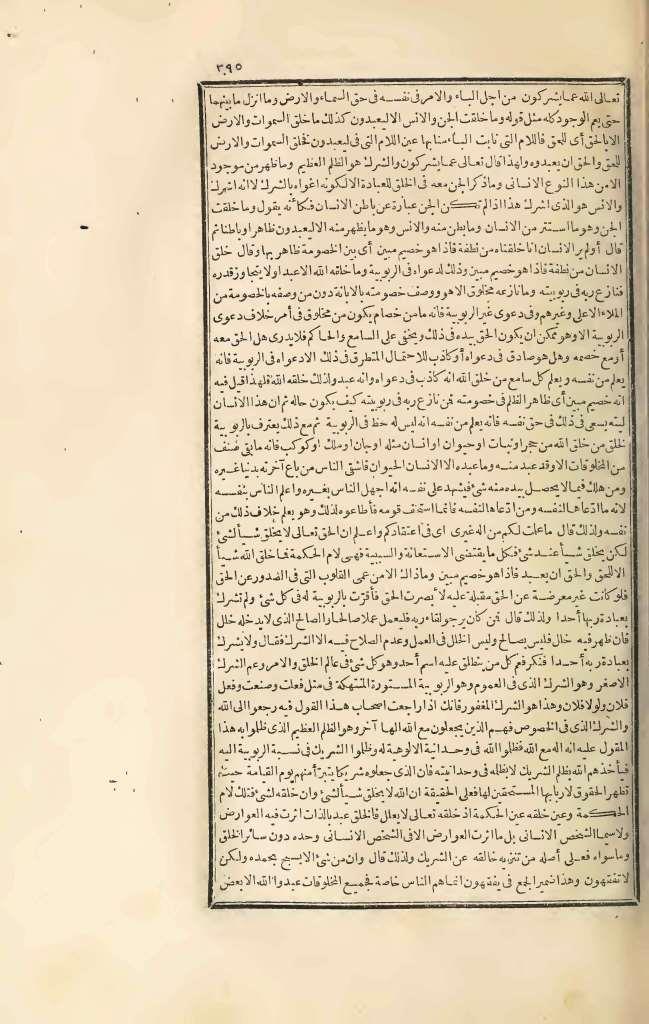 ٣٩٥
تعالى الله عما يشركون من اجل الباء والامر فى نفسه فى حق السماء والارض وما انزل ما بينهما
حتى يم الوجود كله مثل قوله وما خلقت الجن والانس الا ليعبدون كذلك ما خلق السموات والارض
الا بالحق أى للحق فاللام التى نابت الباء منابها عين اللام التى فى ليعبدون فخلق السموات والارض
للحق والحق ان يعبدوه ولهذا قال تعالى عما يشركون والشرك هو الظلم العظيم وما ظهر من موجود
الا من هذا النوع الانسانى وما ذكر الجن معه فى الخلق للعبادة الا لكونه اغواه بالشرك لا انه اشرك
والانس هو الذى اشرك هذا اذا لم تكن الجن عبارة عن باطن الانسان فكأنه يقول وما خلقت
الجن وهو ما استتر من الانسان وما بطن منه والانس وهو ما يظهر منه الا ليعبدون ظاهرا وباطنا ثم
قال أولم ير الانسان انا خلقناه من نطفة فاذا هو خصيم مبين أى بين الخصومة ظاهر بها وقال خلق
الانسان من نطفة فاذا هو خصيم مبين وذلك لدعواه فى الربوبية وما خلقه الله الا عبدا ولا يتجاوز قدره
فنازع ربه فى ربوبيته وما نازعه مخلوق الا هو ووصف خصومته بالابانة دون من وصفه بالخصومة من
الملاء الاعلى وغيرهم وفى دعوى غير الربوبية فانه ما من خصام يكون من مخلوق فى أمر خلاف دعوى
الربوبية الا وهو تمكن ان يكون الحق بيده فى ذلك ويخفى على السامع والحاكم فلا يدرى هل الحق معه
أو مع خصمه وهل هو صادق فى دعواه أو كاذب للاحتمال المتطرق فى ذلك الا دعواه فى الربوبية فانه
يعلم من نفسه ويعلم كل سامع من خلق الله انه كاذب فى دعواه وانه عبد ولذلك خلقه الله فلهذا قيل فيه
انه خصيم مبين أى ظاهر الظلم فى خصومته فمن نازع ربه فى ربوبيته كيف يكون حاله ثم ان هذا الانسان
ليته يسعى فى ذلك فى حق نفسه فانه يعلم من نفسه انه ليس له حظ فى الربوبية ثم مع ذلك يعترف بالربوبية
لخلق من خلق الله من حجر او نبات او حيوان او انسان مثله او جان او ملك او كوكب فانه ما بقى صنف
من المخلوقات الا وقد عبد منه وما عبده الا الانسان الحيوان فاشقى الناس من باع آخرته بدنيا غيره
ومن هلك فيما لا يحصل بيده منه شئ فيشهد على نفسه انه اجهل الناس بغيره واعلم الناس بنفسه
لانه ما ادعاها لنفسه ومن ادعاها لنفسه فانما استخف قومه فأطاعوه لذلك وهو يعلم خلاف ذلك من
نفسه ولذلك قال ما علمت لكم من اله غيرى اى فى اعتقادكم واعلم ان الحق تعالى لا يخلق شيأ لشئ
لكن يخلق شيأ عند شئ فكل ما يقتضى الاستعانة والسببية فهى لام الحكمة فما خلق الله شيأ
الا للحق والحق ان يعبد فاذا هو خصيم مبين وما ذاك الا من عمى القلوب التى فى الصدور عن الحق
فلو كانت غير معرضة عن الحق مقبلة عليه لأ بصرت الحق فأقرت بالربوبية له فى كل شئ ولم تشرك
بعبادة ربها أحدا ولذلك قال فمن كان يرجو لقاء ربه فليعمل عملا صالحا والصالح الذى لا يدخله خلل
فان ظهر فيه خلل فليس بصالح وليس الخلل فى العمل وعدم الصلاح فيه الا الشرك فقال ولا يشرك
بعبادة ربه أحدا فنكر فعم كل من ينطلق عليه اسم أحد وهو كل شئ فى عالم الخلق والامر وعم الشرك
الاصغر وهو الشرك الذى فى العموم وهو الربوبية المستورة المنتهكة فى مثل فعلت وصنعت وفعل
فلان ولولا فلان وهذا هو الشرك المغفور فانك اذا راجعت اصحاب هذا القول فيه رجعوا الى الله
والشرك الذى فى الخصوص فهم الذين يجعلون مع الله الها آخر وهو الظلم العظيم الذى ظلموا به هذا
المقول عليه انه اله مع الله فظلموا الله فى وحدانية الالوهية له وظلموا الشريك فى نسبة الربوبية اليه
فيأخذهم الله بظلم الشريك لا بظلمه فى وحدانيته فان الذى جعلوه شريكا يتبرأ منهم يوم القيامة حيث
تظهر الحقوق لاربابها المستحقين لها فعلى الحقيقة ان الله لا يخلق شيأ لشئ وان خلقه لشئ فتلك لام
الحكمة وعين خلقه عين الحكمة اذ خلقه تعالى لا يعلل فالخلق عبد بالذات اثرت فيه العوارض
ولا سيما الشخص الانسانى بل ما اثرت العوارض الا فى الشخص الانسانى وحده دون سائر الخلق
وما سواه فعلى أصله من تنزيه خالقه عن الشريك ولذلك قال وان من شئ الا يسبح بحمده ولكن
لا تفقهون وهذا ضمير الجمع فى يفقهون انما هم الناس خاصة فجميع المخلوقات عبدوا الله الا بعض